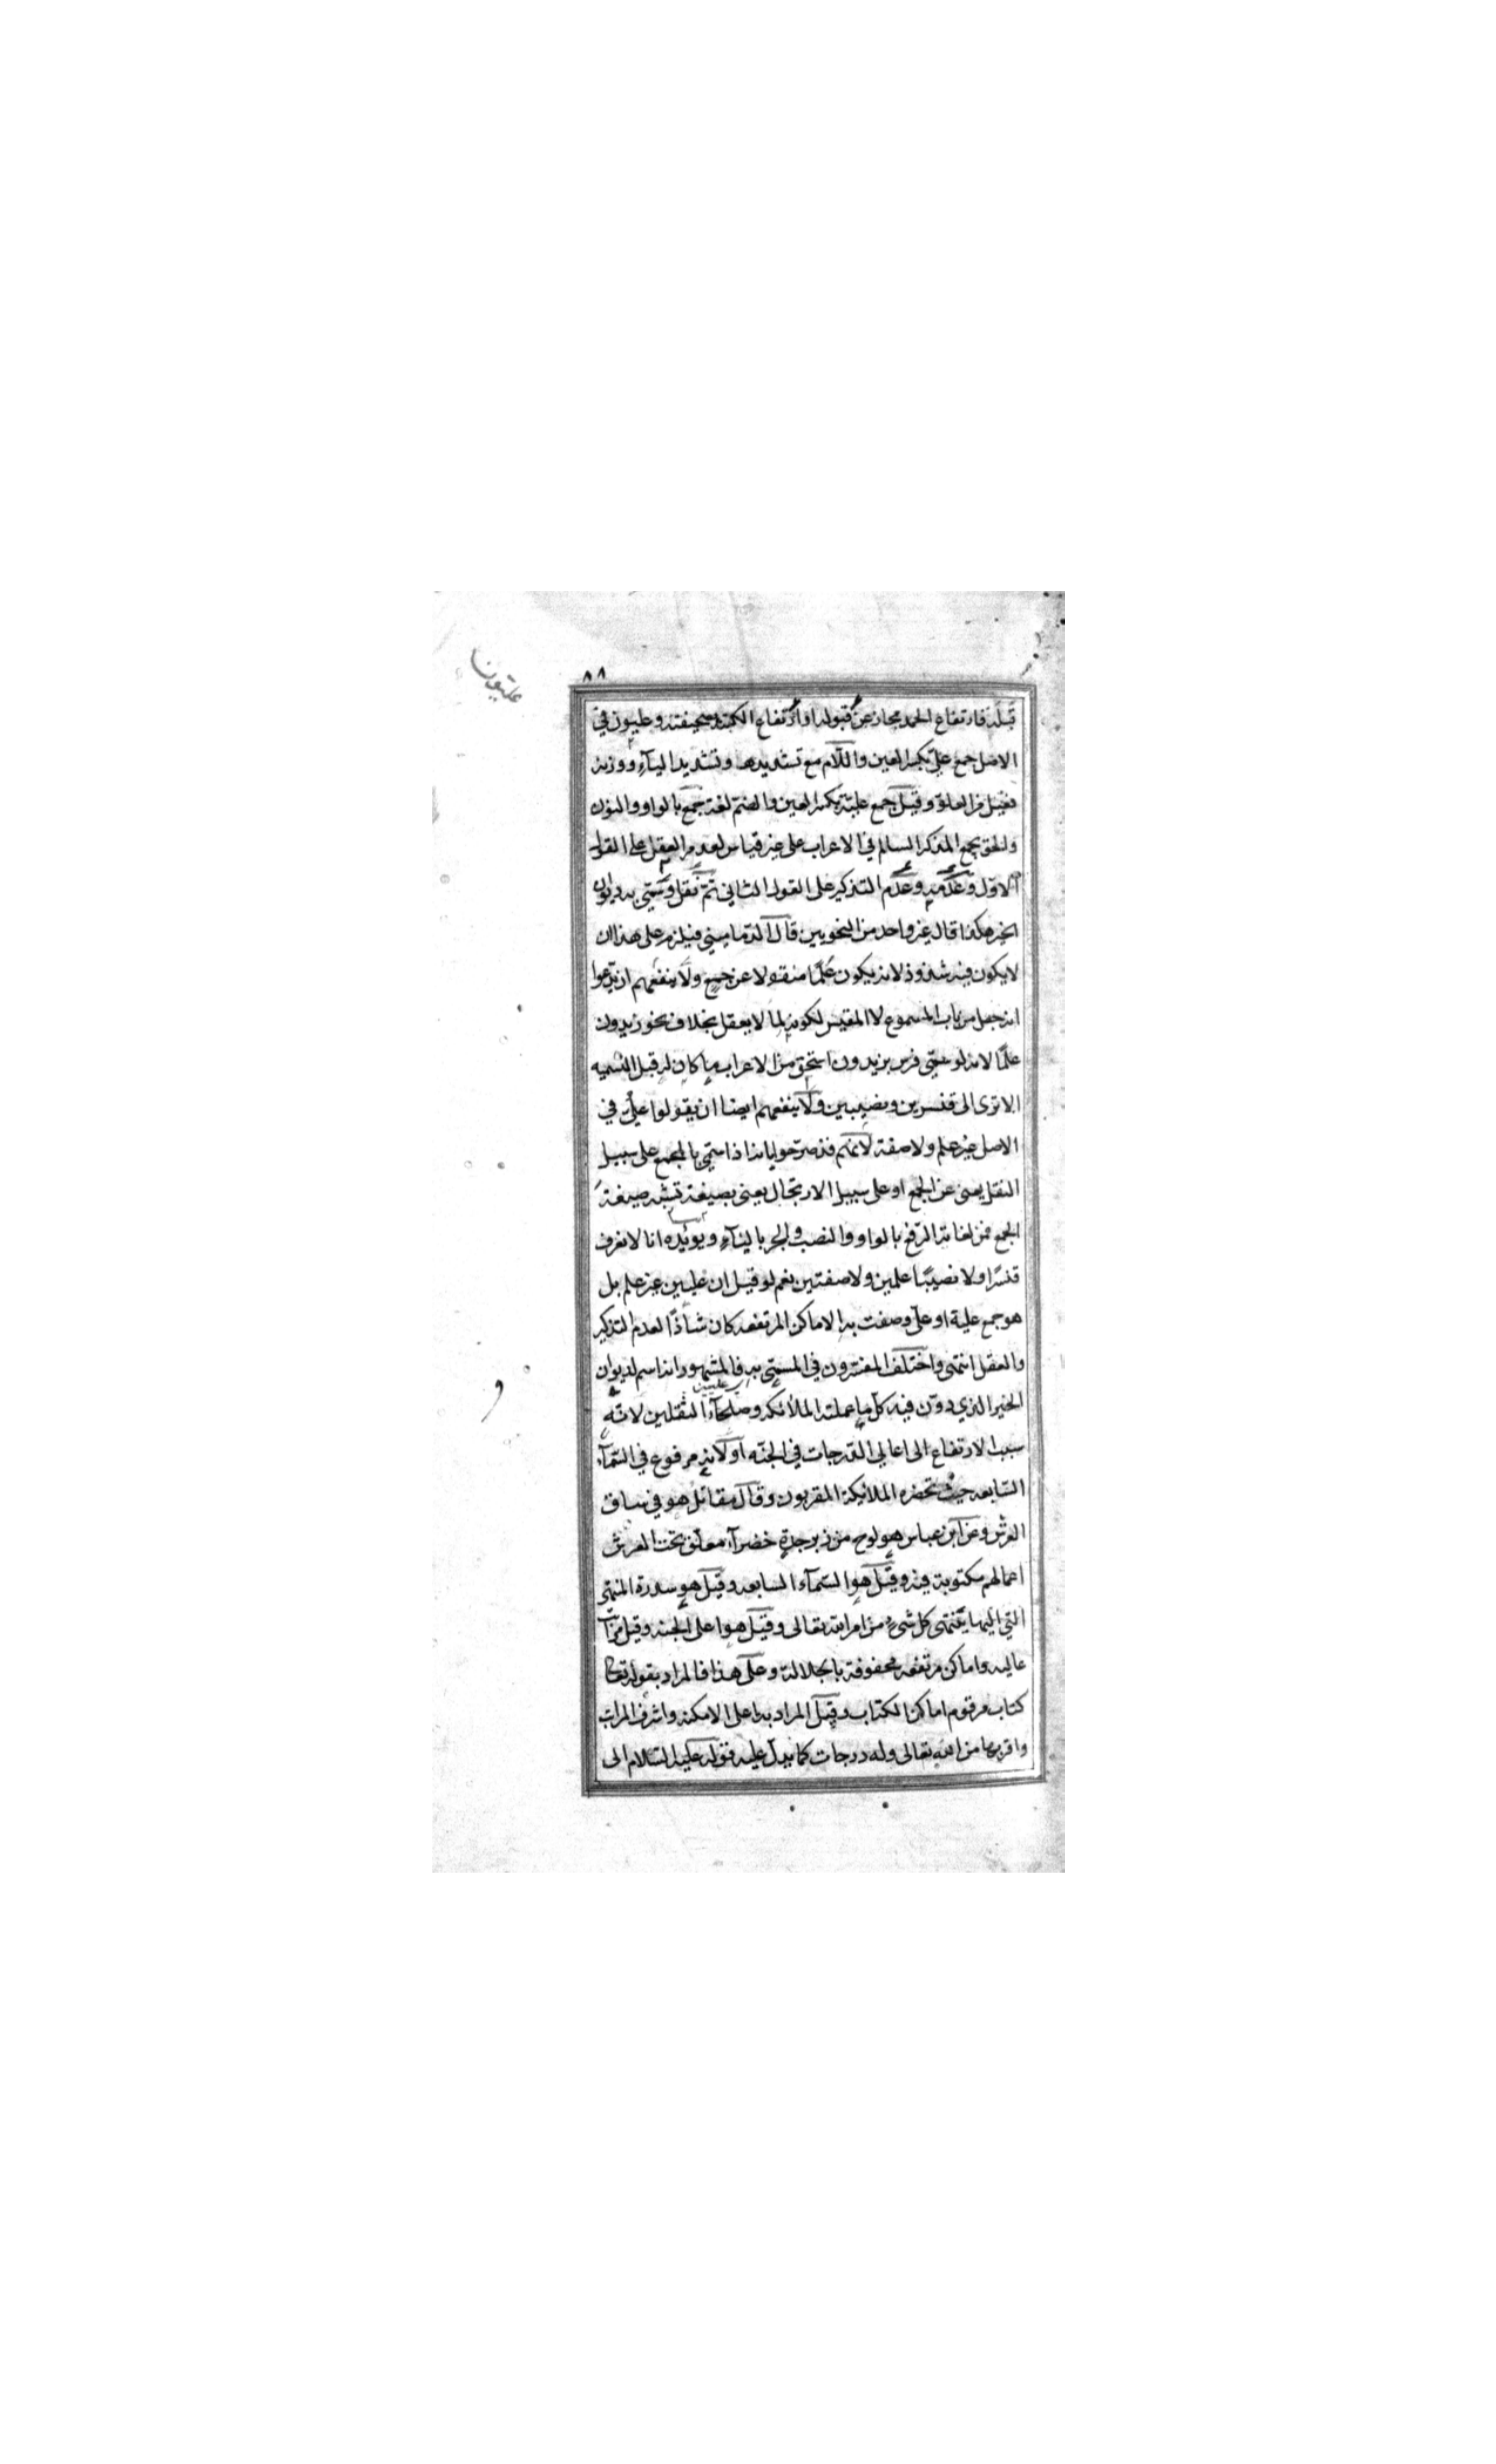 ٨٨
عليونا
قبله فارتفاع الحمد مجاز عن قبوله او ارتفاع الكتبة بصحيفته وعليون في
الاصل جمع عليّ بكسر العين واللام مع تشديدها وتشديد الياء ووزنه
فعيل من العلو وقيل جمع علية بكسر العين والضم لغة جمع بالواو والنون
والحق بجمع المذكر السالم في الاعراب على غير قياس لعدم العقل على القول
الاول وعدمه وعدم التذكير على القول الثاني ثم نقل وسمي به ديوان
الخير هكذا قال غير واحد من النحويين قال الدماميني فيلزم على هذا ان
لا يكون فيه شذوذ لانه يكون علما منقولا عن جمع ولا ينفعهم ان يدعوا
انه جعل من باب المسموع لا المقيس لكونه لما لا يعقل بخلاف نحو زيدون
علما لانه لو سمي فرس بزيدون استحق من الاعراب ما كان له قبل التسميه
الا ترى الى قنسرين ونصيبين ولا ينفعهم ايضا ان يقولوا عليّ في
الاصل غير علم ولا صفة لانهم قد صرحوا بانه اذا سمي بالجمع على سبيل
النقل يعنى عن الجمع او على سبيل الارتجال يعنى بصيغة تشبه صيغة
الجمع فمن لغاته الرفع بالواو والنصب والجر بالياء ويؤيده انا لا نعرف
قنسرا ولا نصيبا علمين ولا صفتين نعم لو قيل ان عليين غير علم بل
هو جمع علية او علي وصفت به الاماكن المرتفعه كان شاذا لعدم التذكير
والعقل انتهى واختلف المفسرون في المسمى به فالمشهور انه اسم لديوان
عليين
الخير الذي دون فيه كل ما عملته الملائكه وصلحاء الثقلين لانه
سبب الارتفاع الى اعالي الدرجات في الجنه او لانه مرفوع في السماء
السابعه حيث تحضره الملائكة المقربون وقال مقاتل هو في ساق
العرش وعن ابن عباس هو لوح من زبرجدة خضراء معلق تحت العرش
اعمالهم مكتوبة فيه وقيل هو السماء السابعه وقيل هو سدرة المنتهى
التي اليها ينتهى كل شيء من امر الله تعالى وقيل هو اعلى الجنه وقيل مراتب
عاليه واماكن مرتفعه محفوفة بالجلالة وعلى هذا فالمراد بقوله تعالى
كتاب مرقوم اماكن الكتاب وقيل المراد به اعلى الامكنه واشرف المراتب
واقربها من الله تعالى وله درجات كما يدل عليه قوله عليه السلام الى
و